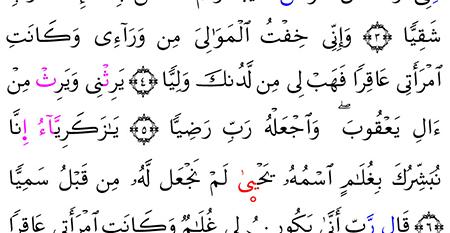 شَقِيًّا ﴿٣﴾ وَإِنِّى خِفْتُ ٱلْمَوَٰلِىَ مِن وَرَآءِى وَكَانَتِ
ٱمْرَأَتِى عَاقِرًا فَهَبْ لِى مِن لَّدُنكَ وَلِيًّا ﴿٤﴾ يَرِثْنِى وَيَرِثُ مِنْ
ءَالِ يَعْقُوبَ ۖ وَٱجْعَلْهُ رَبِّ رَضِيًّا ﴿٥﴾ يَٰزَكَرِيَّآءُ إِنَّا
نُبَشِّرُكَ بِغُلَٰمٍ ٱسْمُهُۥ يَحْيَىٰ لَمْ نَجْعَل لَّهُۥ مِن قَبْلُ سَمِيًّا
﴿٦﴾ قَالَ رَبِّ أَنَّىٰ يَكُونُ لِى غُلَٰمٌ وَكَانَتِ ٱمْرَأَتِى عَاقِرًا